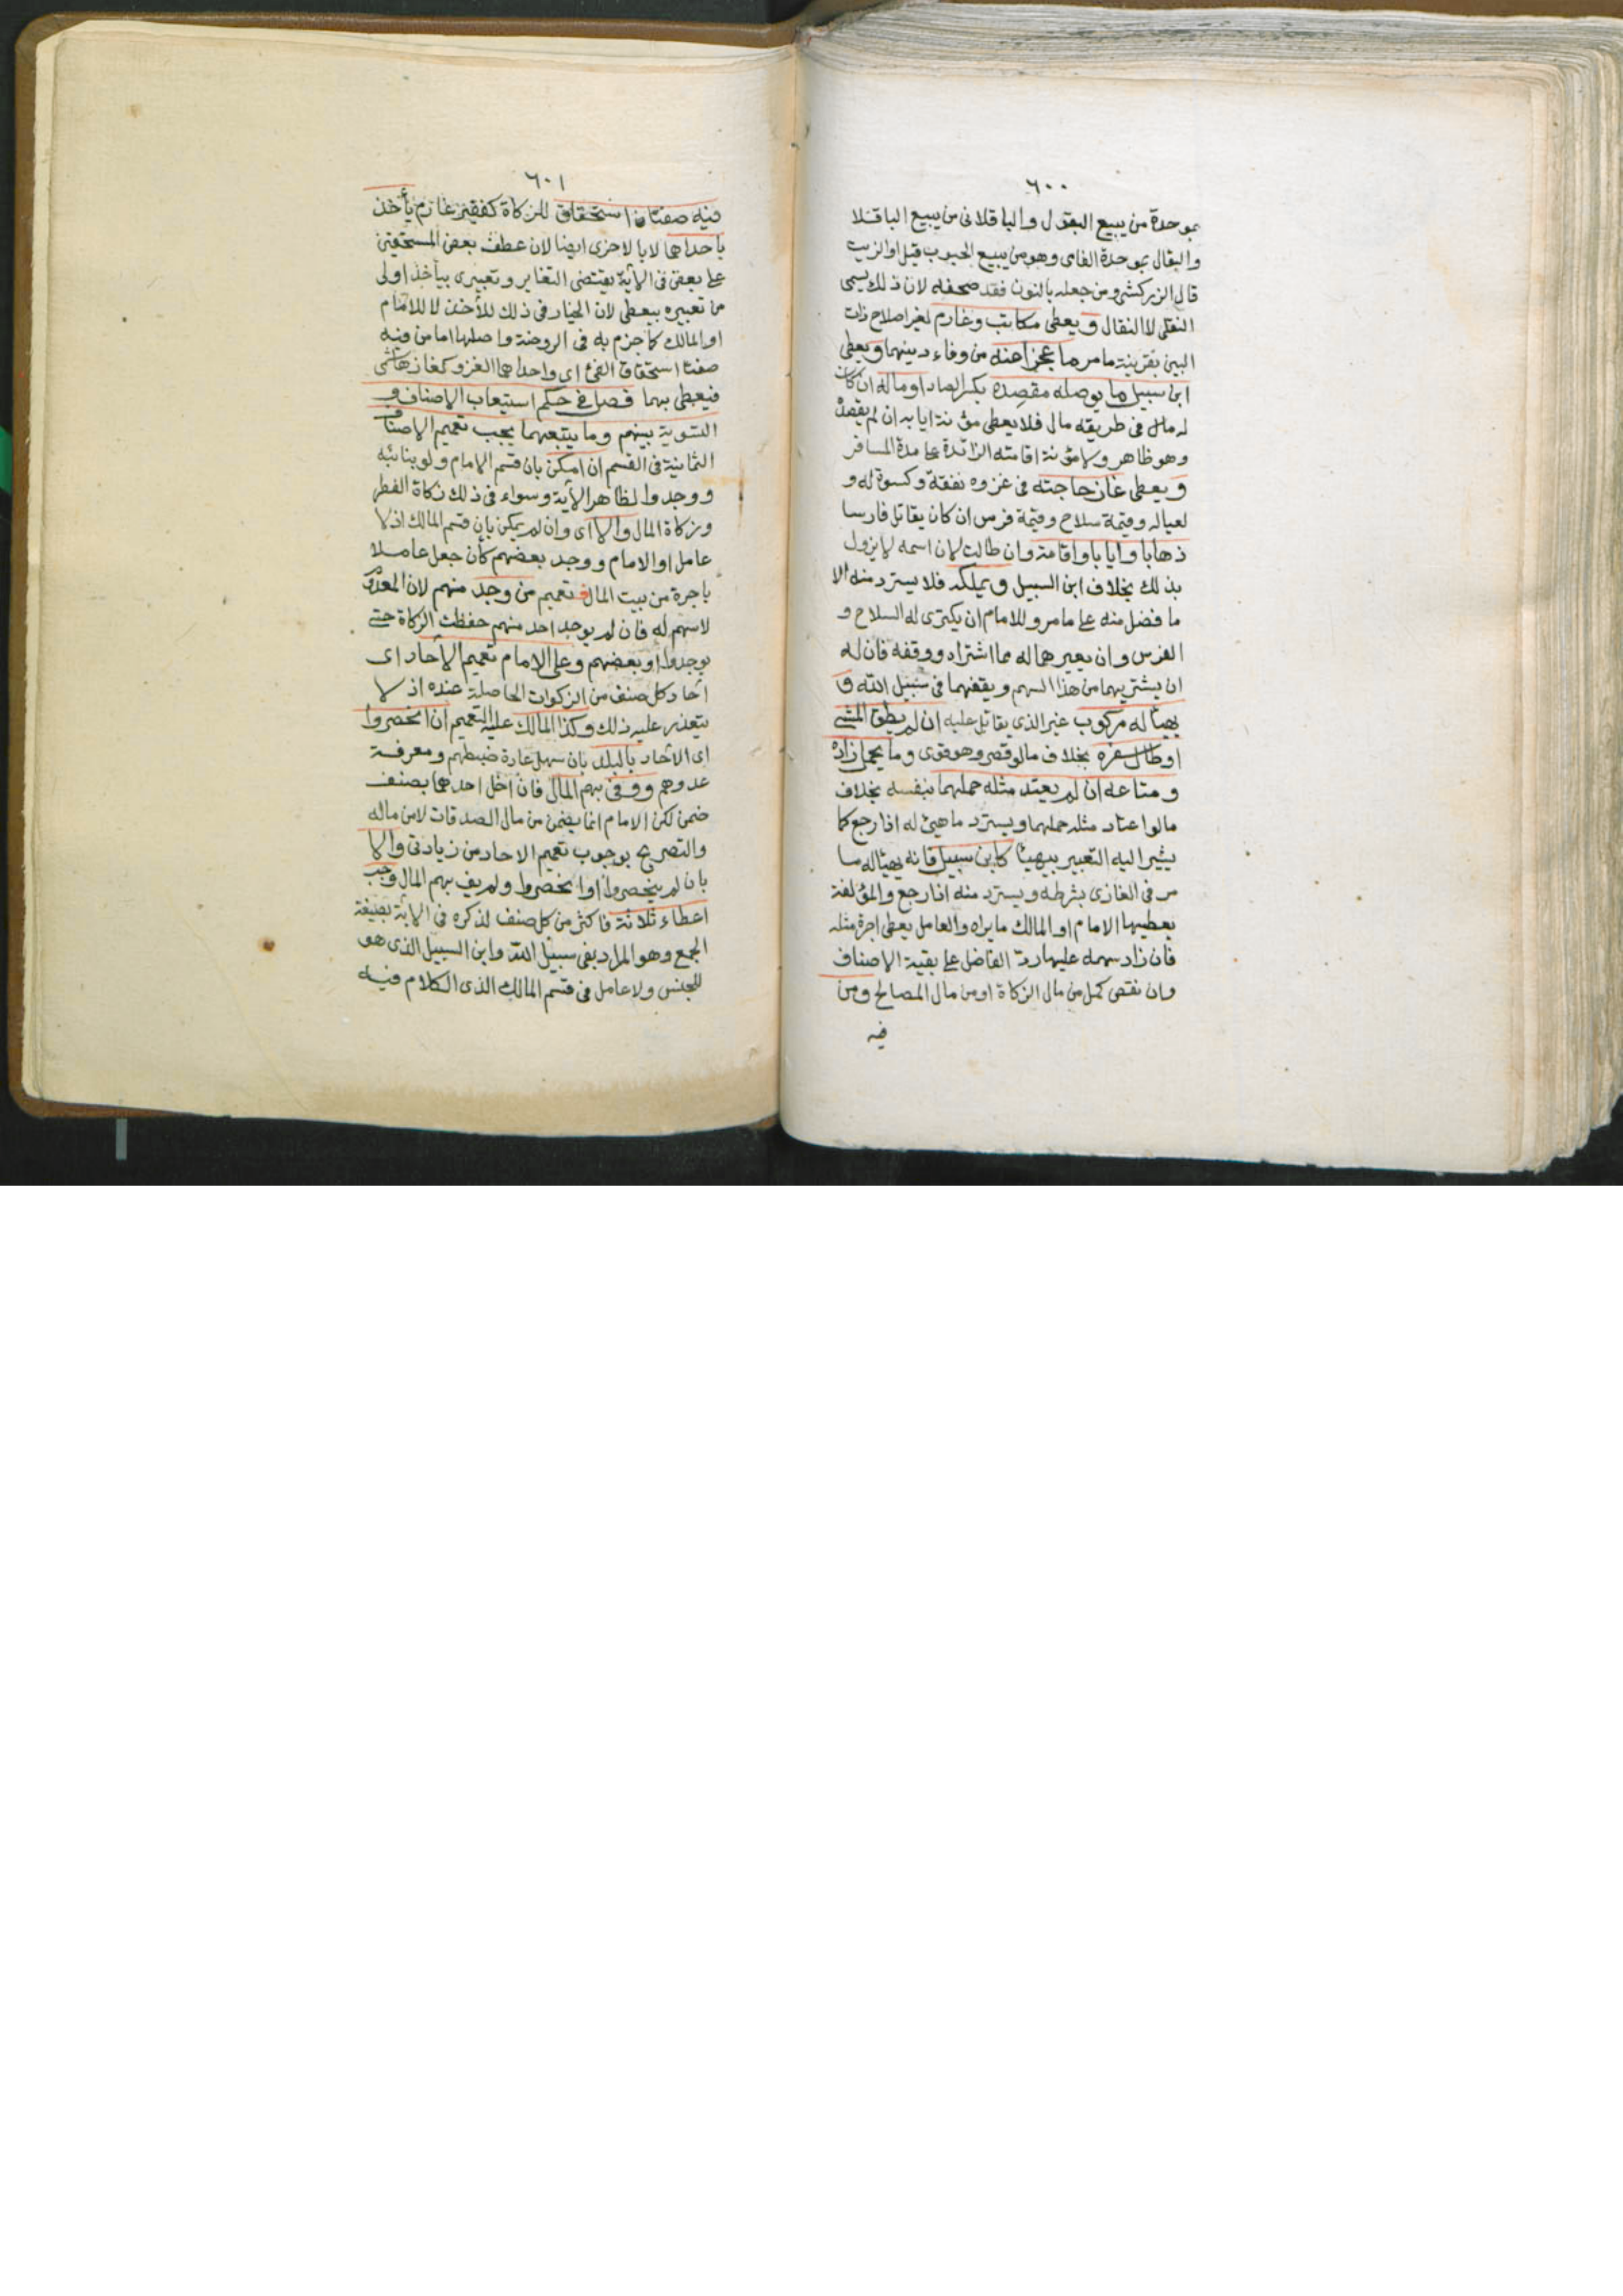 ٦٠٠
بموحدة من يبيع البقول والباقلانى من يبيع الباقلا
والبقال بموحدة الفامى وهو من يبيع الحبوب قيل او الزيت
قال الزركشى ومن جعله بالنون فقد صحفه لان ذلك يسمى
النقلى لا النقال و يعطى مكاتب وغارم لغير اصلاح ذات
البين بقرينة مامر ما عجزا عنه من وفاء دينهما و يعطى
ابن سبيل ما يوصله مقصده بكسر الصاد او ماله ان كان
له مال فى طريقه مال فلا يعطى مؤنة ايابه ان لم يقصده
وهو ظاهر ولا مؤنة اقامته الزائدة على مدة المسافر
و يعطى غاز حاجته فى غزوه نفقة وكسوة له و
لعياله وقيمة سلاح وقيمة فرس ان كان يقاتل فارسا
ذهابا وايابا واقامة وان طالت لان اسمه لا يزول
بذلك بخلاف ابن السبيل و يملكه فلا يسترد منه الا
ما فضل منه على مامر وللامام ان يكترى له السلاح و
الفرس وان يعيرهما له مما اشتراه ووقفه فان له
ان يشتريهما من هذا السهم ويقفهما فى سبيل الله و
يهيأ له مركوب غير الذى يقاتل عليه ان لم يطق المشى
او طال سفره بخلاف مالو قصر وهو قوى وما يحمل زاده
ومتاعه ان لم يعتد مثله حملهما بنفسه بخلاف
مالو اعتاد مثله حملهما ويسترد ما هيئ له اذا رجع كما
يشير اليه التعبير بيهيأ كابن سبيل فانه يهيأ له ما
مر فى الغازى بشرطه ويسترد منه اذا رجع والمؤلفة
يعطيها الامام او المالك ما يراه والعامل يعطى اجرة مثله
فان زاد سهمه عليها رد الفاضل على بقية الاصناف
وان نقص كمل من مال الزكاة او من مال المصالح ومن
فيه
٦٠١
فيه صفتا استحقاق للزكاة كفقير غارم يأخذ
باحداهما لا بالاخرى ايضا لان عطف بعض المستحقين
على بعض فى الآية يقتضى التغاير وتعبيرى بيأخذ اولى
من تعبيره بيعطى لان الخيار فى ذلك للآخذ لا للامام
او المالك كما جزم به فى الروضة واصلها اما من فيه
صفتا استحقاق الفئ اى واحداهما الغزو كغاز هاشمى
فيعطى بهما فصل فى حكم استيعاب الاصناف و
التسوية بينهم وما يتبعهما يجب تعميم الاصناف
الثمانية فى القسم ان امكن بان قسم الامام ولو بنائبه
ووجدوا لظاهر الآية وسواء فى ذلك زكاة الفطر
وزكاة المال والا اى وان لم يمكن بان قسم المالك اذ لا
عامل او الامام ووجد بعضهم كأن جعل عاملا
باجرة من بيت المال فتعميم من وجد منهم لان المعدوم
لا سهم له فان لم يوجد احد منهم حفظت الزكاة حتى
يوجدوا او بعضهم وعلى الامام تعميم الآحاد اى
آحاد كل صنف من الزكوات الحاصلة عنده اذ لا
يتعذر عليه ذلك وكذا المالك عليه التعميم ان انحصروا
اى الآحاد بالبلد بان سهل عادة ضبطهم ومعرفة
عددهم ووفى بهم المال فان اخل احدهما بصنف
ضمن لكن الامام انما يضمن من مال الصدقات لا من ماله
والتصريح بوجوب تعميم الاحاد من زيادتى والا
بان لم ينحصروا او انحصروا ولم يف بهم المال وجب
اعطاء ثلاثة فاكثر من كل صنف لذكره فى الآية بصيغة
الجمع وهو المراد بفى سبيل الله وابن السبيل الذى هو
للجنس ولا عامل فى قسم المالك الذى الكلام فيه